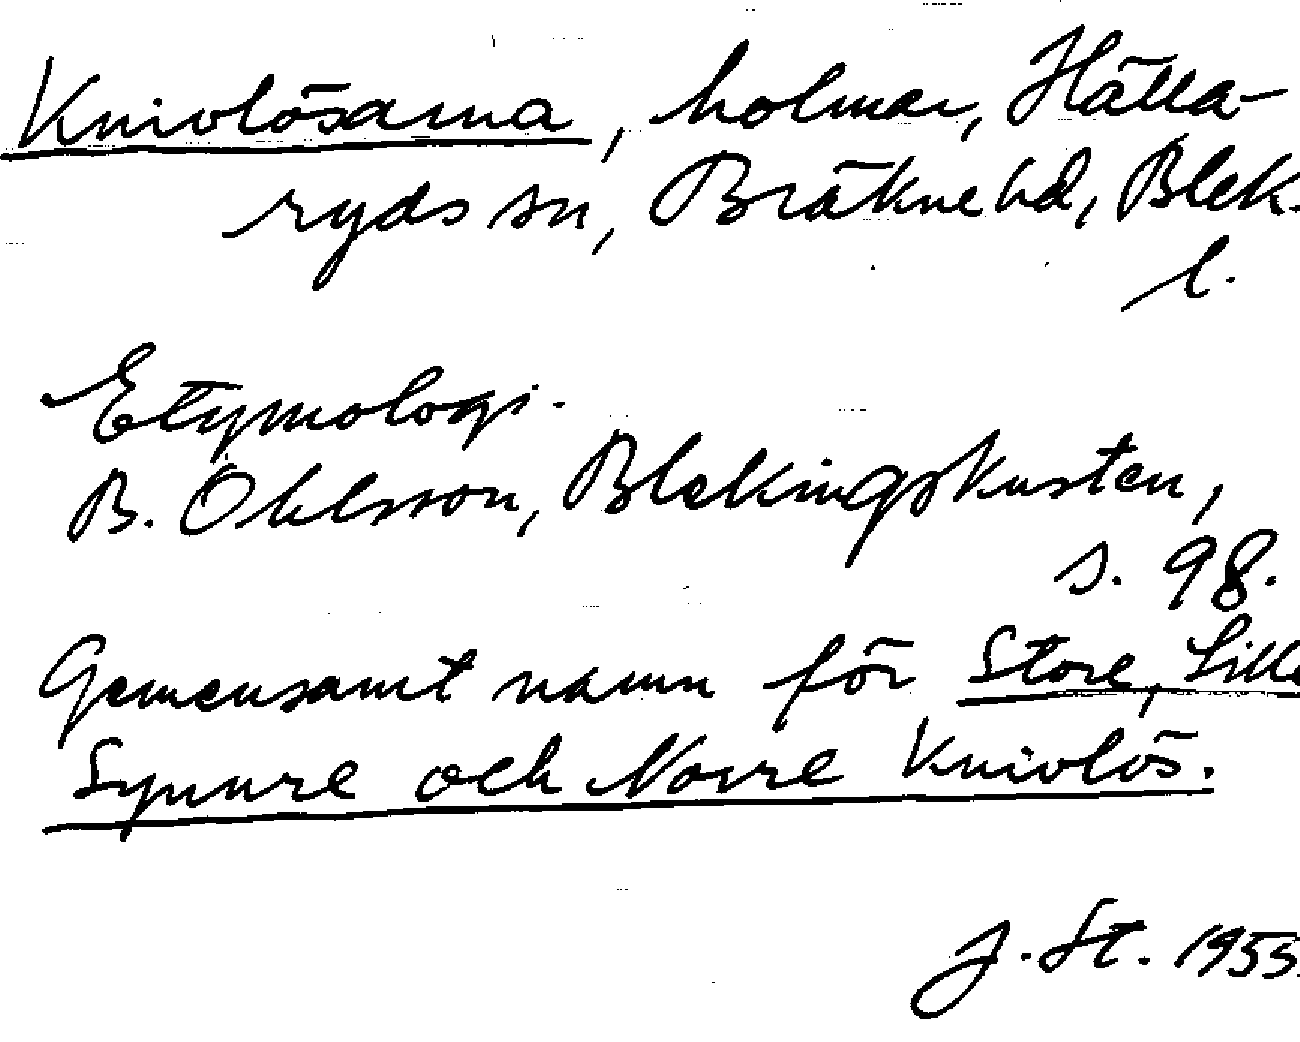 Knivlösarna, holmar, Hälla-
ryds sn, Bräkne hd, Blek.
l.
Etymologi.
B. Ohlsson, Blekingskusten,
s. 98.
Gemensamt namn för Store, Lille
Synnre och Norre Knivlös.
J. St. 1955.